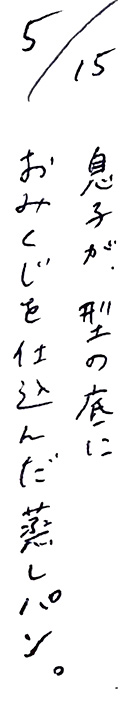 5/15
息子が、型の底に
おみくじを仕込んだ蒸しパン。